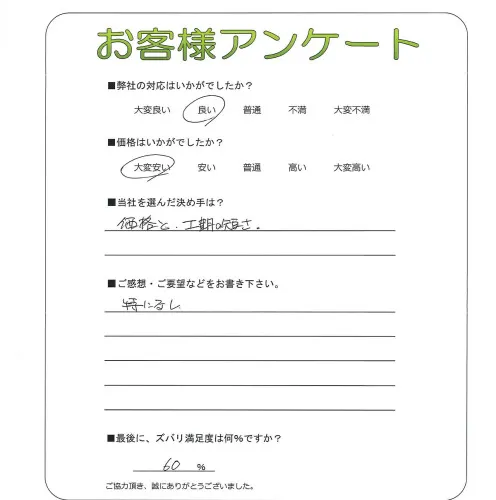 お客様アンケート
■弊社の対応はいかがでしたか？
大変良い 良い 普通 不満 大変不満
■価格はいかがでしたか？
大変安い 安い 普通 高い 大変高い
■当社を選んだ決め手は？
価格と、工期の短さ。
■ご感想・ご要望などをお書き下さい。
特になし
■最後に、ズバリ満足度は何%ですか？
60 %
ご協力頂き、誠にありがとうございました。